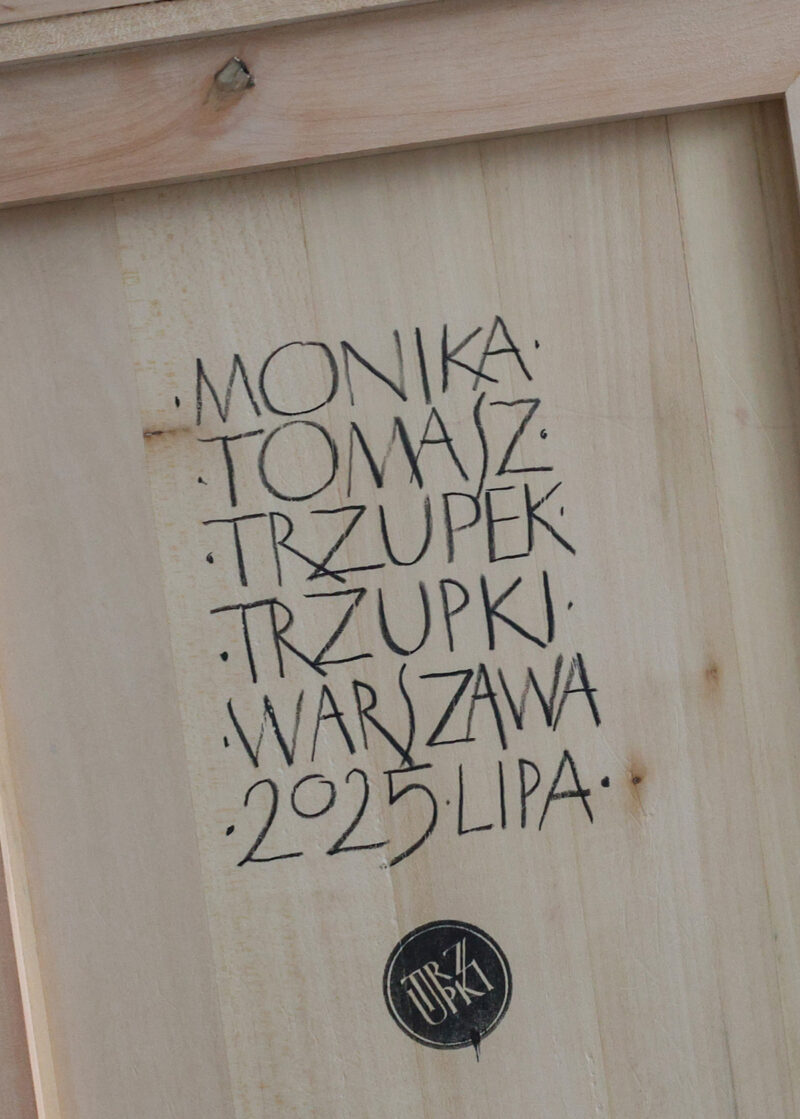 ·MONIKA·
·TOMASZ·
·TRZUPEK·
·TRZUPKI·
·WARSZAWA
·2025·LIPA·
TRZ
UPKI